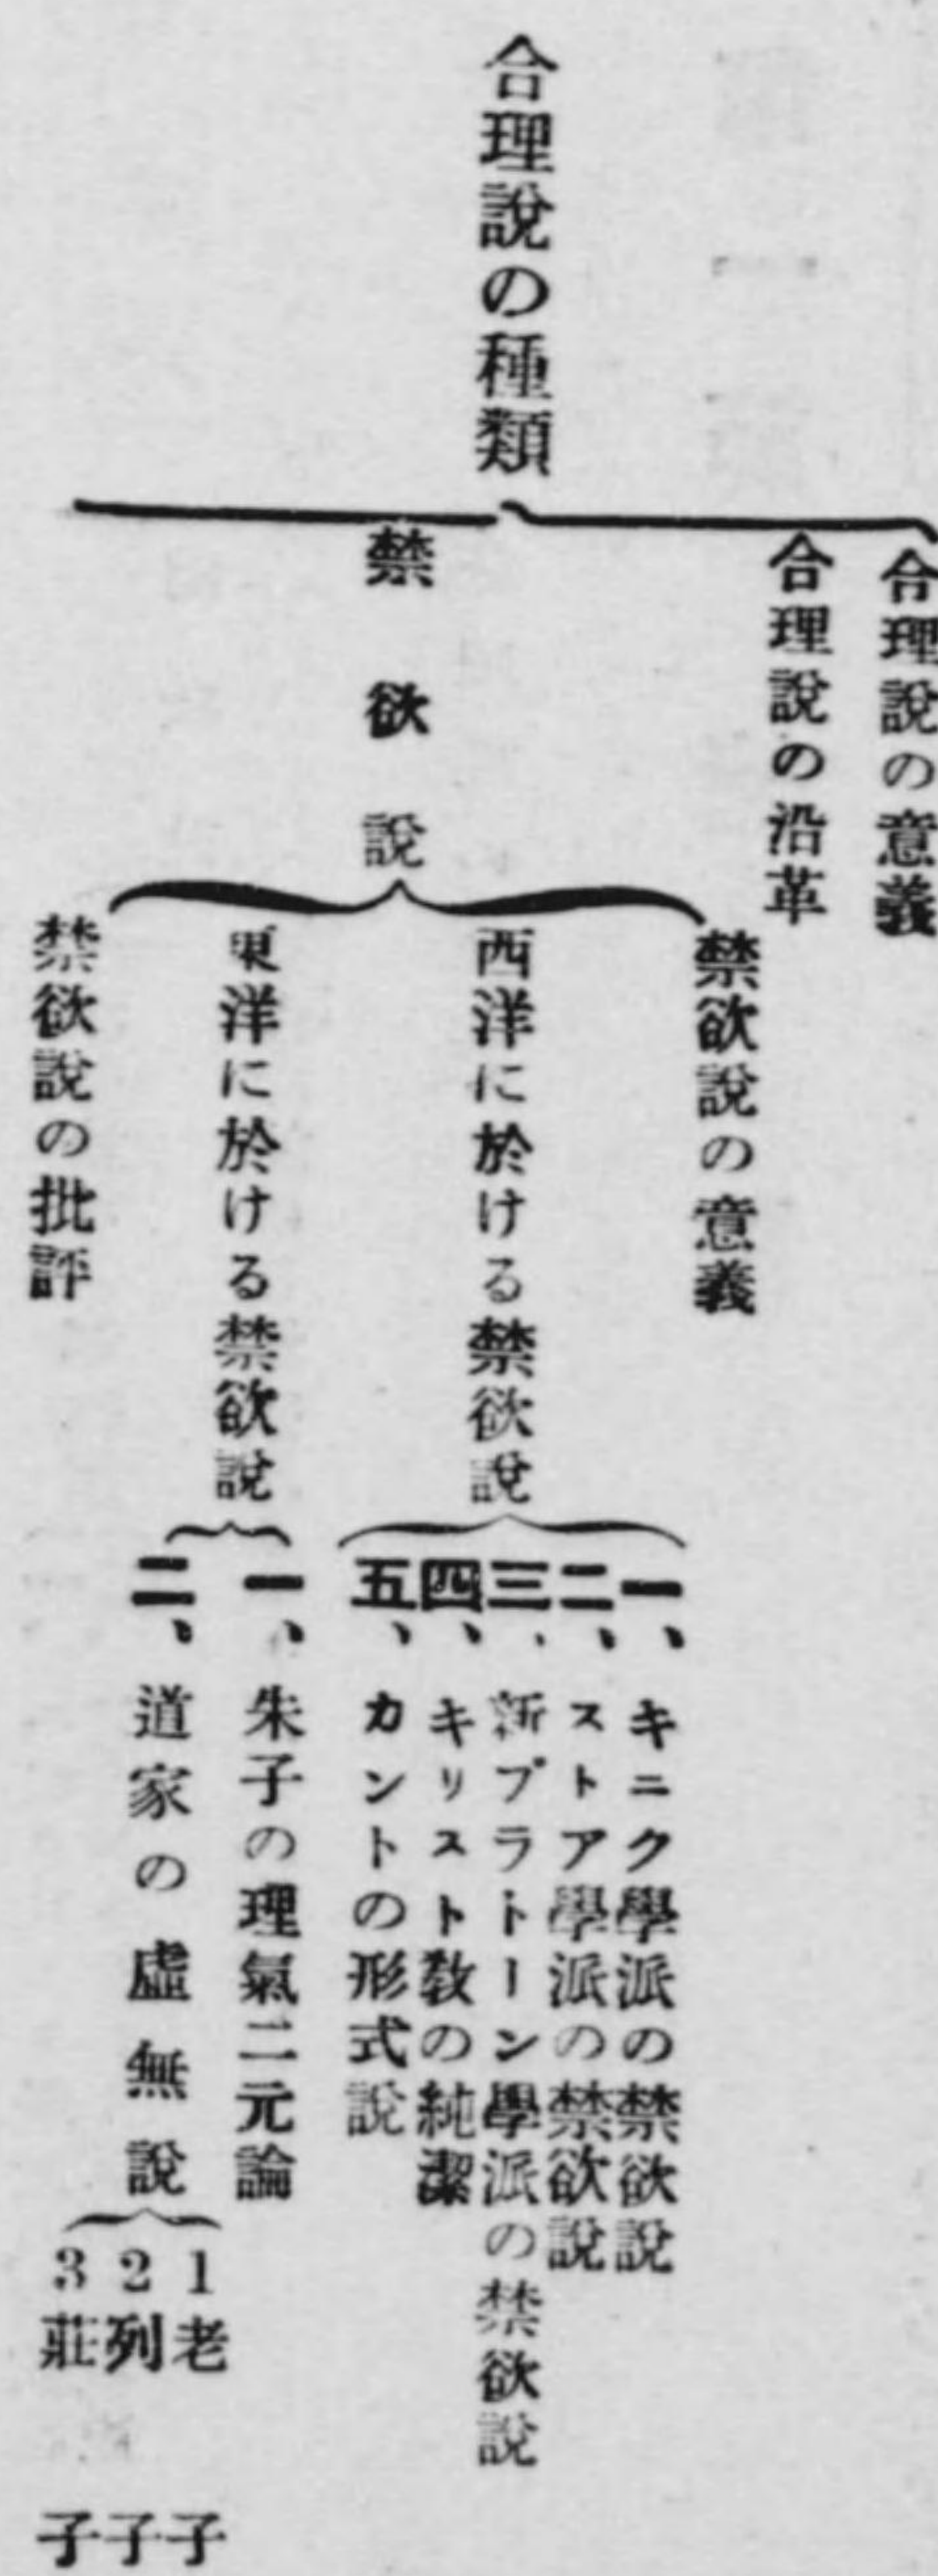 合理說の種類
合理說の意義
合理說の沿革
禁欲說
禁欲說の意義
西洋に於ける禁欲說
一、キニク學派の禁欲說
二、ストア學派の禁欲說
三、新プラトーン學派の禁欲說
四、キリスト教の純潔
五、カントの形式說
東洋に於ける禁欲說
一、朱子の理氣二元論
二、道家の虛無說
1老子
2列子
3莊子
禁欲說の批評